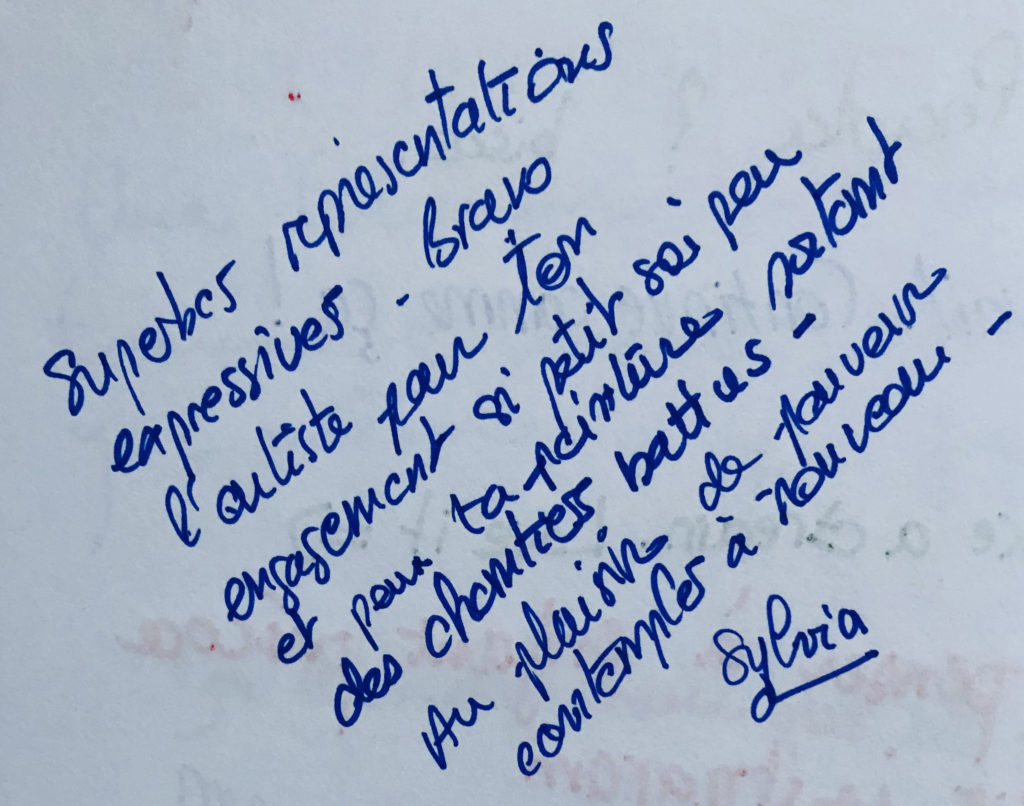 Superbes représentations
expressives - Bravo
l'artiste pour ton
engagement si petit soi peu
et pour ta peinture sortant
des chantiers battus -
Au plaisir de pouvoir
contempler à nouveau -
Sylvia